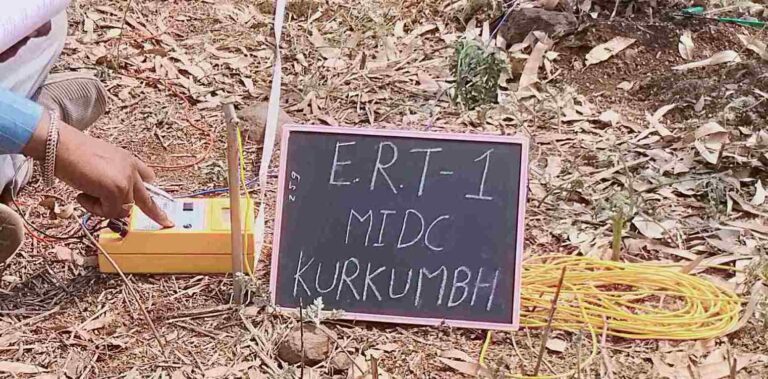 E.R.T-1
MIDC
KURKUMBH